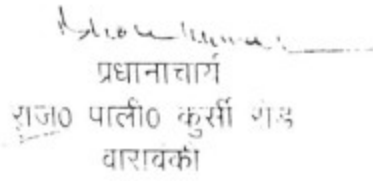 प्रधानाचार्य
राज0 पाली0 कुर्सी रोड
बाराबंकी